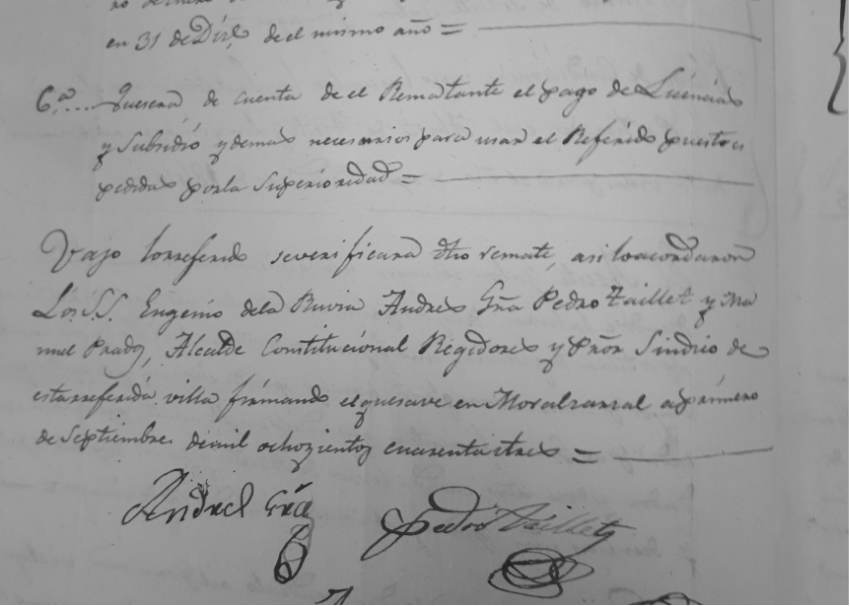 en 31 de Dīz.ᵉ de el mismo año =
6.ª... Quesera de cuenta de el Rematante el pago de Licencias
y Subsidio ydemas necesarios para usar el Referido puestos
pedidas porla Superioridad =
Vajo loreferido severificara dho remate, asi loacordaron
Los S.S. Eugenio dela Rivia Andres Gr̃a Pedro Taillet y Ma
nuel Prado, Alcalde Constitucional Regidores y Pr̃or Sindico de
estarreferida villa firmando elquesave en Moralzarzal aprimero
de Septiembre demil ochozientos cuarentaitres =
Andres Gr̃a
Pedro Taillet